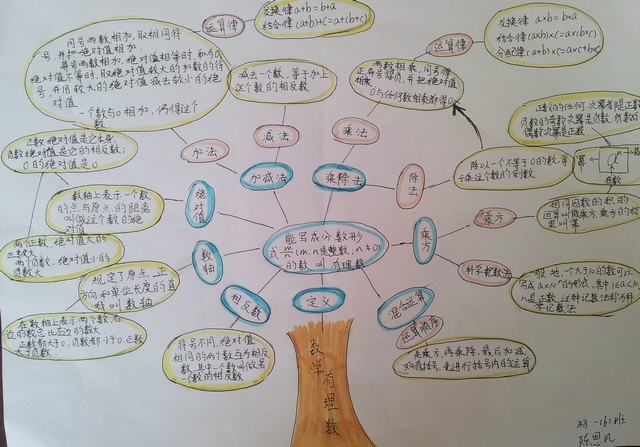 同号两数相加,取相同符
号,并把绝对值相加.
异号两数相加,绝对值相等时,和为0,
绝对值不等时,取绝对值较大的加数的符
号,并用较大的绝对值减去较小的绝
对值.
一个数与0相加,仍得这个
数
运算律
交换律a+b=b+a
结合律(a+b)+c=a+(b+c)
加法
减去一个数,等于加上
这个数的相反数
减法
加减法
运算律
交换律 a×b=b×a
结合律(a×b)×c=a×(b×c)
分配律(a+b)×c=a×c+b×c
两数相乘,同号得
正,异号得负,并把绝对值
相乘
0与任何数相乘都得0
乘法
乘除法
除法
除以一个不等于0的数,等
于乘这个数的倒数
正数的任何次幂都是正数
负数的奇数次幂是负数,负数的
偶数次幂是正数
幂
底数
相同因数的积的
运算叫做乘方,乘方的结
果叫幂
乘方
乘方
科学记数法
一般地,一个大于10的数可以
写成a×10ⁿ的形式,其中1≤a<10,
n是正数,这种记数法称为科
学记数法
混合运算
运算顺序
先乘方,再乘除,最后加减,
如有括号,先进行括号内的运算
正数绝对值是它本身,
负数绝对值是它的相反数,
0的绝对值是0
数轴上表示一个数
的点与原点的距离
叫做这个数的绝
对值
两个正数,绝对值大的
正数大
两个负数,绝对值小的
负数大
绝对值
规定了原点、正
方向和单位长度的直
线叫数轴
在数轴上表示两个数,右
边的数总比左边的数大
正数都大于0,负数都小于0.正数
大于负数.
数轴
相反数
符号不同,绝对值
相同的两个数互为相反
数,其中一个数叫做另
一个数的相反数
定义
能写成分数形
式m/n(m,n是整数,n≠0)
的数叫有理数
数学有理数
初一(6)班
陈思凡